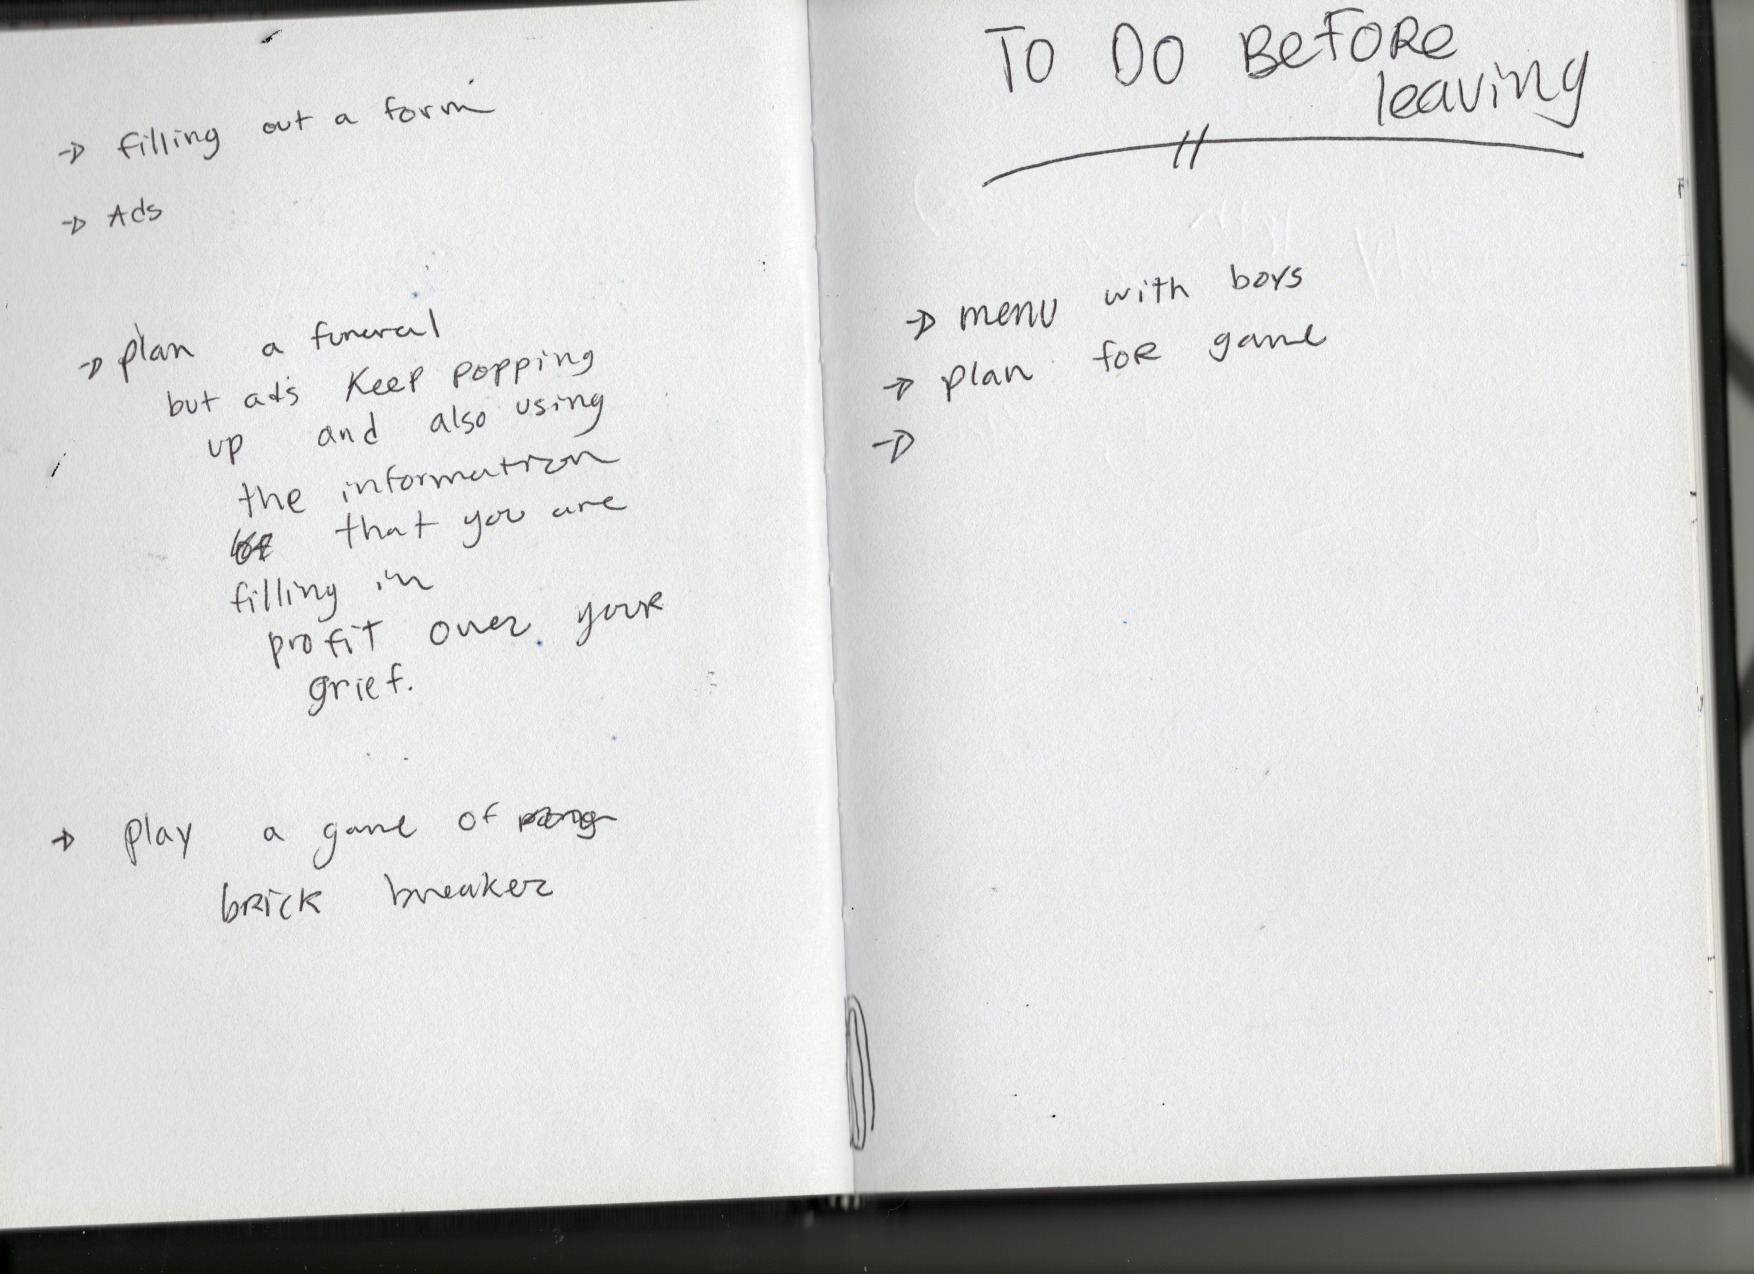 → filling out a form
→ Ads
→ plan a funeral
but ads keep popping
up and also using
the information
that you are
filling in
profit over your
grief.
→ play a game of pong
brick breaker
TO DO BEFORE
leaving
→ menu with boys
→ plan for game
→